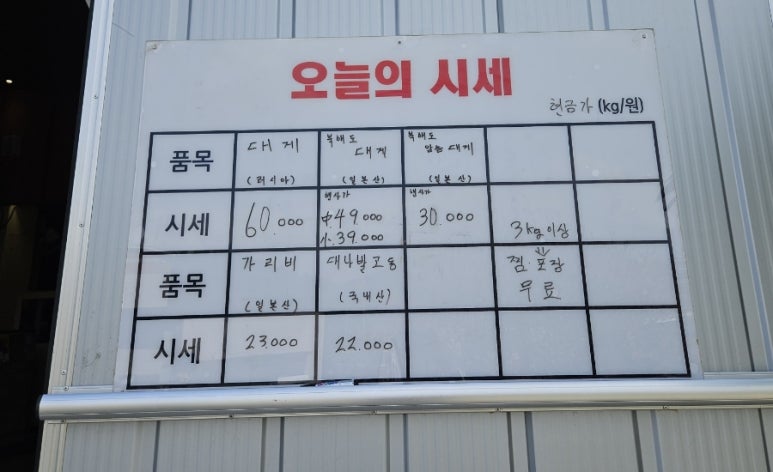 오늘의 시세
현금가 (kg/원)
품목
대게
(러시아)
북해도
대게
(일본산)
북해도
암놈대게
(일본산)
시세
60.000
행사가
中.49.000
小.39.000
행사가
30.000
3kg 이상
품목
가리비
(일본산)
대나발고동
(국내산)
찜·포장
무료
시세
23.000
22.000